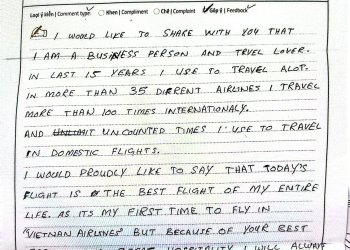 Loại ý kiến | Comment type: Khen | Compliment Chê | Complaint Góp ý | Feedback
I WOULD LIKE TO SHARE WITH YOU THAT
I AM A BUSINESS PERSON AND TRVEL LOVER.
IN LAST 15 YEARS I USE TO TRAVEL ALOT.
IN MORE THAN 35 DIFRENT AIRLINES I TRAVEL
MORE THAN 100 TIMES INTERNATIONALY.
AND UNCOUNTED TIMES I USE TO TRAVEL
IN DOMESTIC FLIGHTS.
I WOULD PROUDLY LIKE TO SAY THAT TODAY'S
FLIGHT IS THE BEST FLIGHT OF MY ENTIRE
LIFE. AS ITS MY FIRST TIME TO FLY IN
"VIETNAM AIRLINES" BUT BECAUSE OF YOUR BEST
HOSPITALITY I WILL ALWAYS